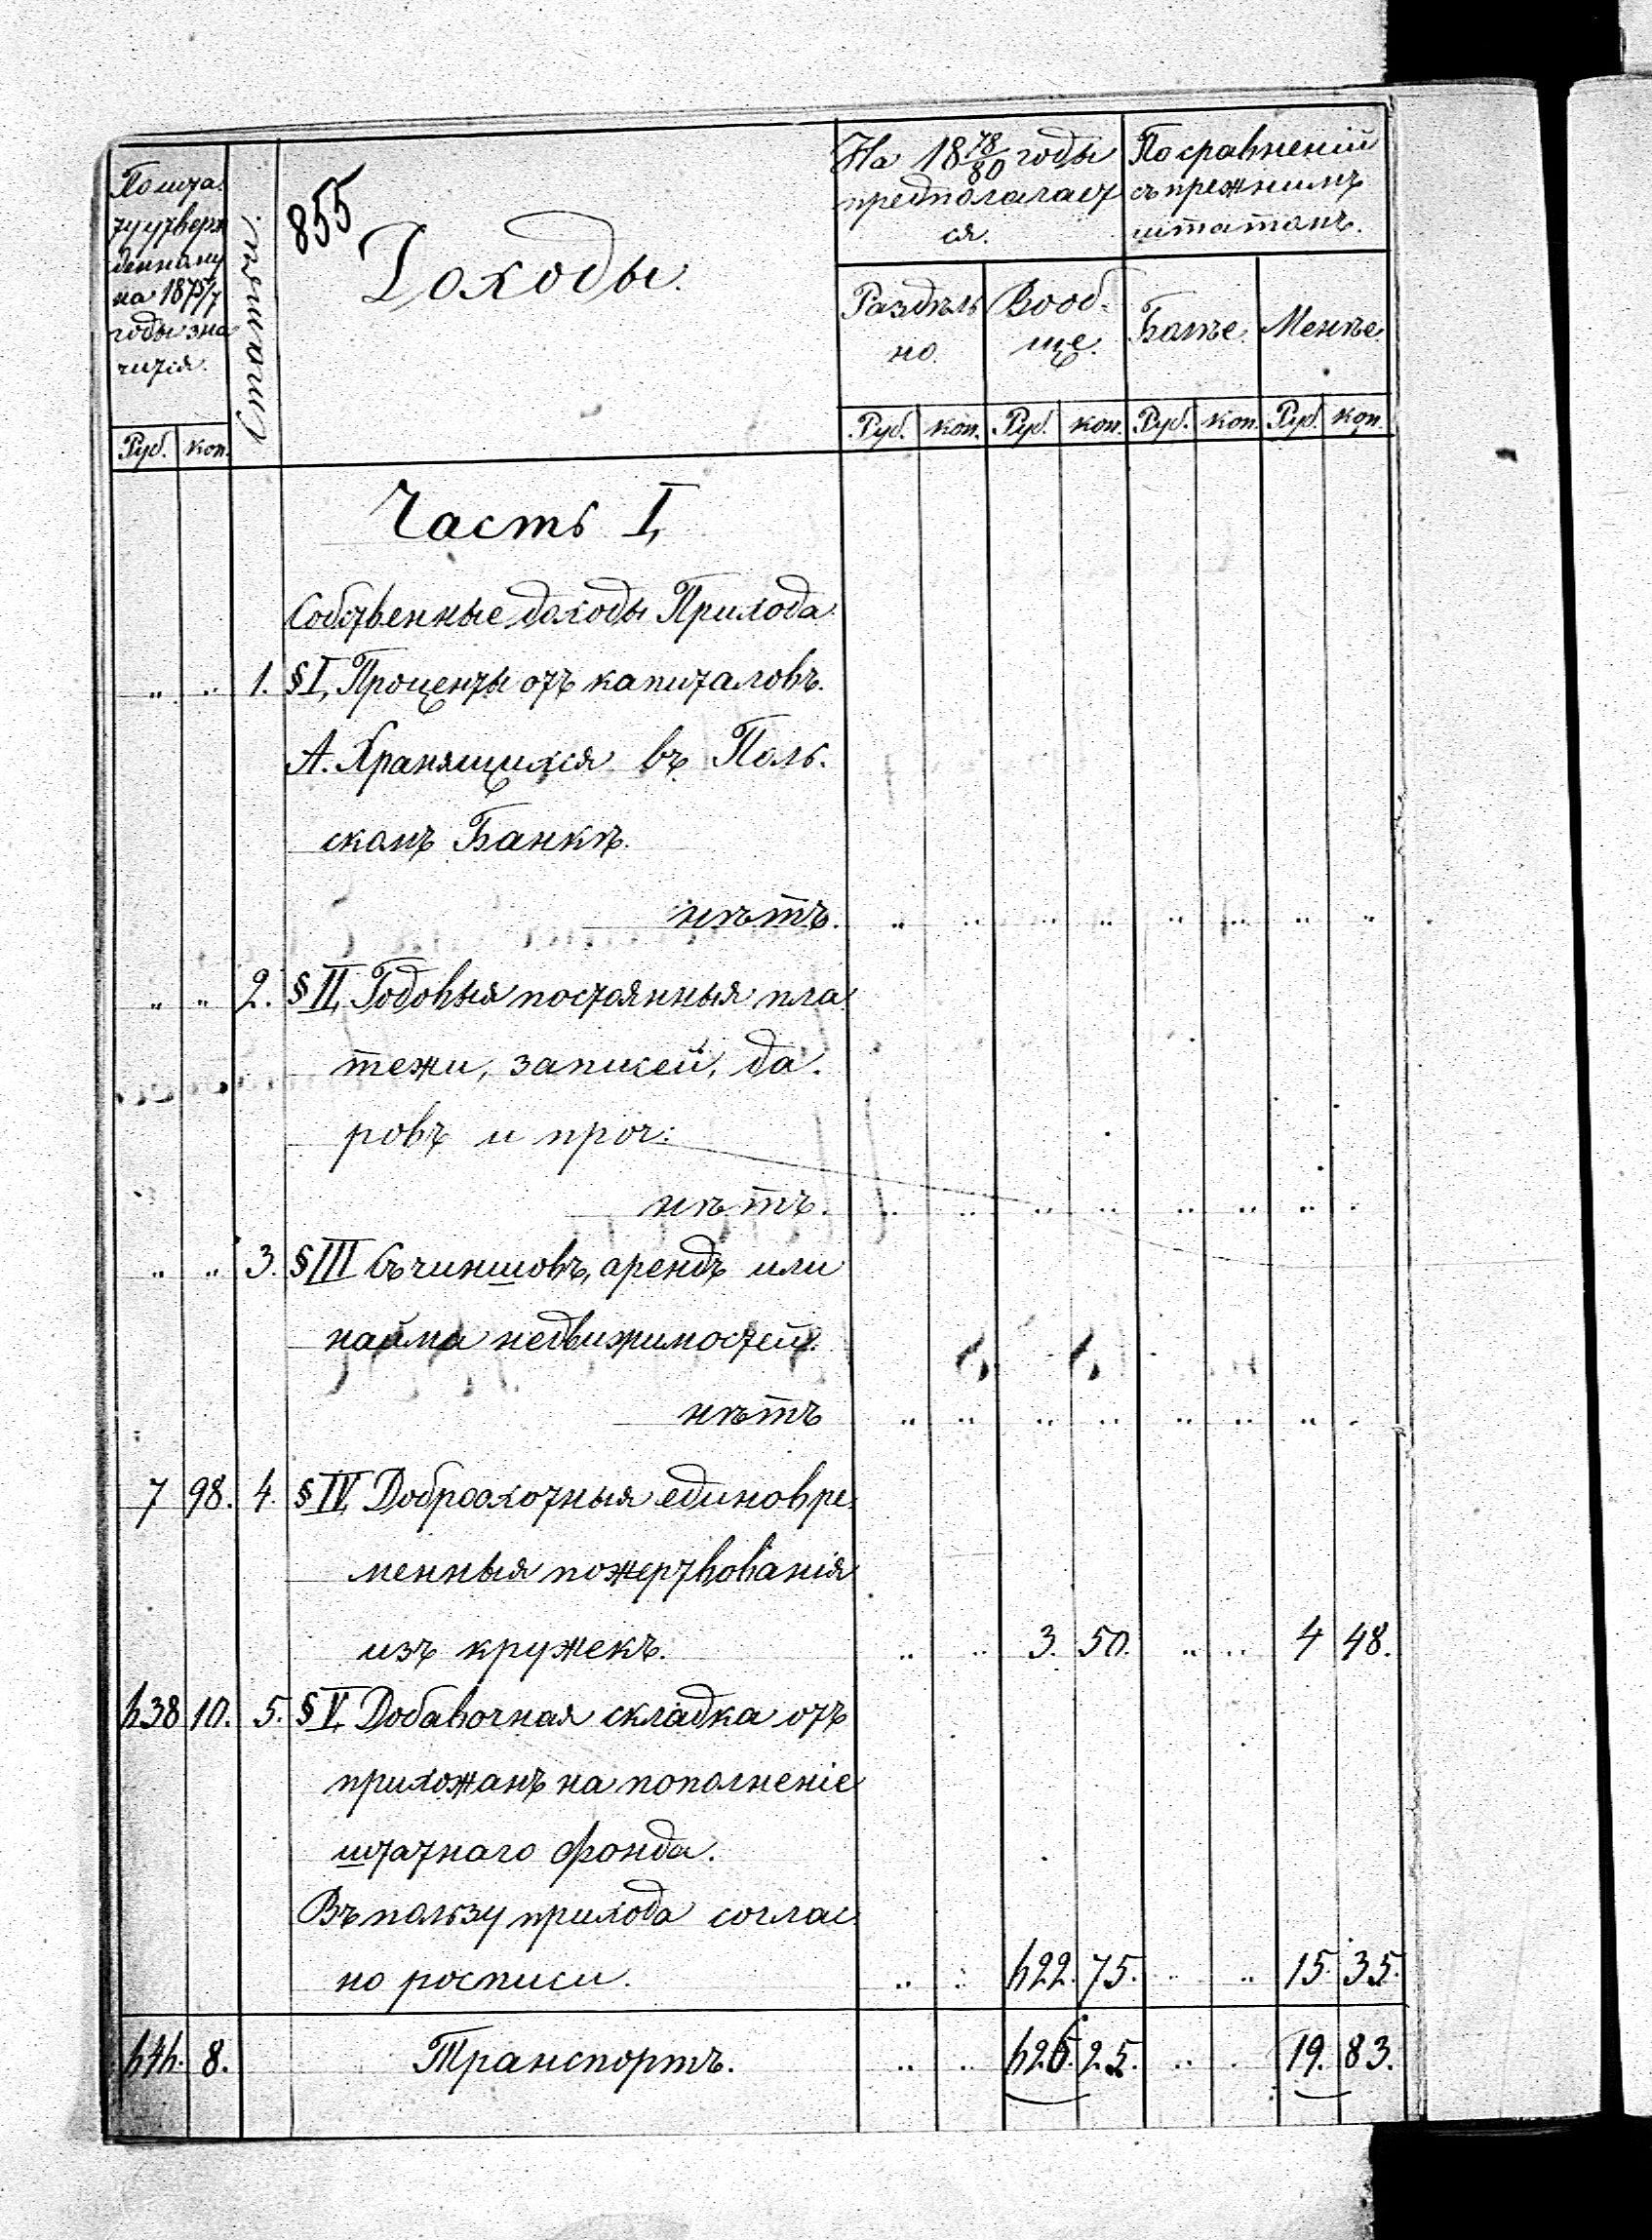 По шта-
ту утверж
денному
на 1875/7
годы зна
чится.
Статьи:
855
Доходы.
На 18 78/80 годы
предполагает
ся.
По сравненій
съ прежнимъ
штатомъ.
Раздѣль
но.
Вооб-
ще.
Болѣе. Менѣе.
Руб. коп. Руб. коп. Руб. коп. Руб. коп. Руб. коп.
Часть I,
Собственные доходы Прихода
" " 1. § I, Проценты отъ капиталовъ.
А. Хранящихся въ Поль-
скомъ Банкѣ.
нѣтъ. " " " " " " " "
" " 2. § II, Годовыя постоянныя пла-
тежи, записей, да-
ровъ и проч:
нѣтъ. " " " " " " " "
" " 3. § III Съ чиншовъ, арендъ или
найма недвижимостей.
нѣтъ " " " " " " " "
7 98. 4. § IV, Доброхотныя единовре-
менныя пожертвованія
изъ кружекъ. " " 3. 50. " " 4 48.
638 10. 5. § V, Добавочная складка отъ
прихожанъ на пополненіе
штатнаго фонда.
Въ пользу прихода соглас
но росписи. " " 622. 75. " " 15. 35.
646. 8. Транспортъ. " " 626. 25. " " 19. 83.